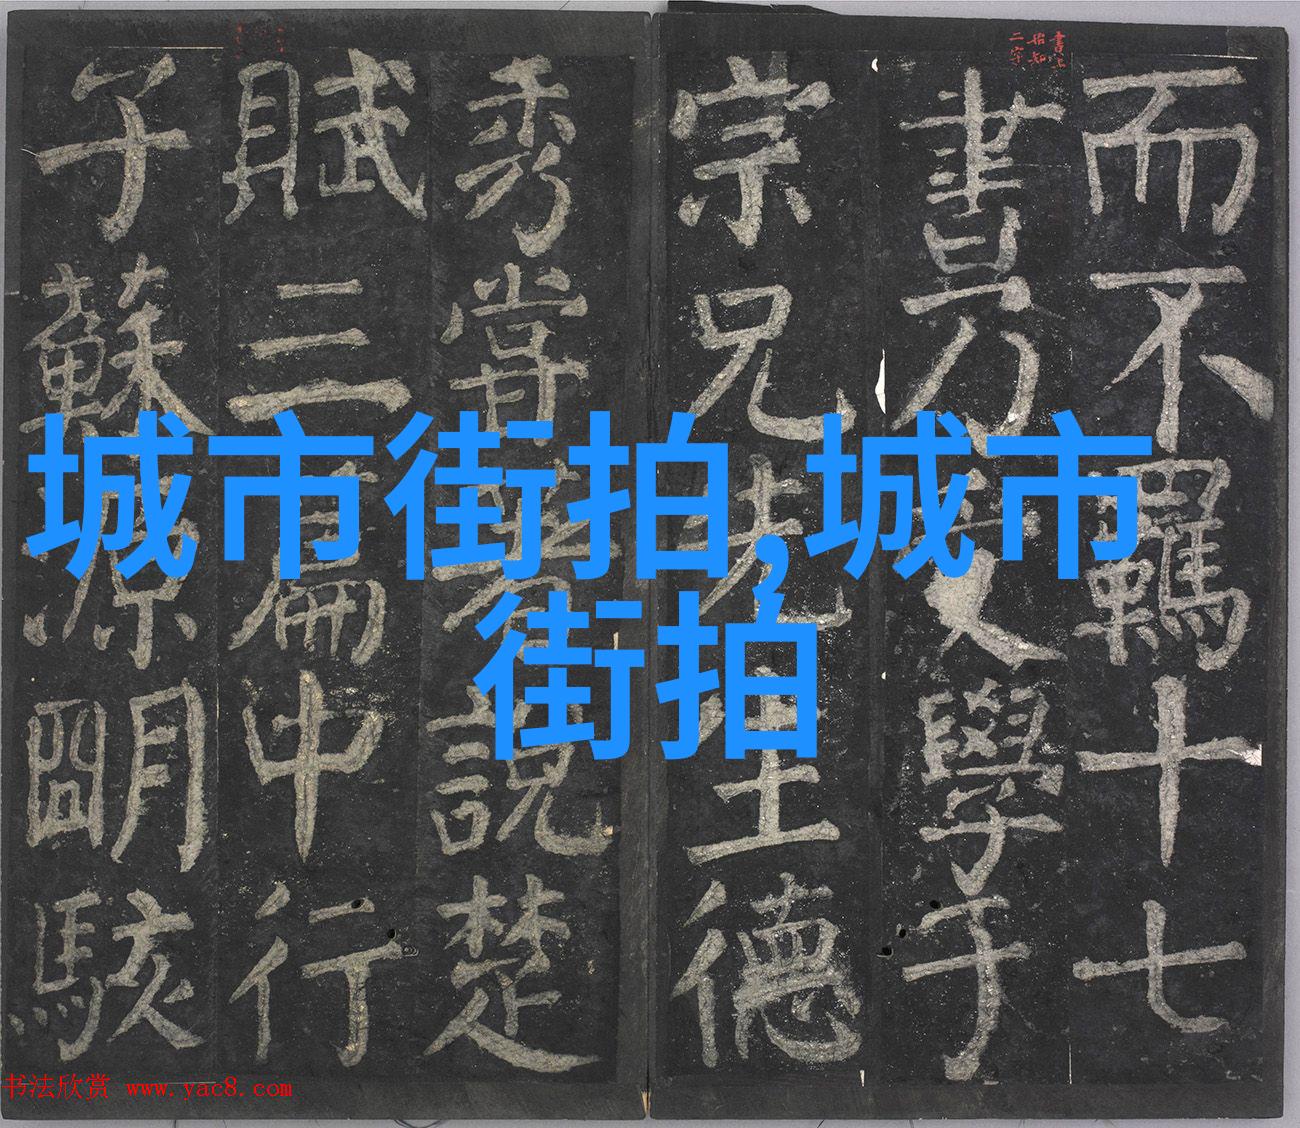 書上
始知
二字
而不羈十七
書乃文學子
宗兄先生德
秀嘗著說楚
賦三篇中行
子蘇源明駭
城市街拍,城市
街拍
书法欣赏 www.yac8.com